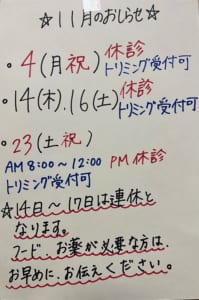 ☆11月のおしらせ☆
・4(月祝)休診
トリミング受付可
・14(木).16(土)休診
トリミング受付可
・23(土祝)
AM8:00〜12:00 PM休診
トリミング受付可
☆14日〜17日は連休と
なります。
フード、お薬が必要な方は、
お早めに、お伝えください。